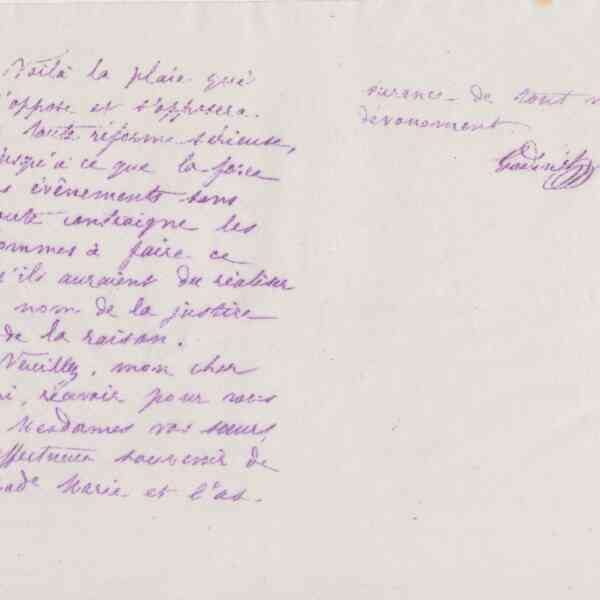 Voilà la plaie qui
s'oppose et s'opposera
toute réforme sérieuse,
jusqu'à ce que la force
s évènements sans
oute contraigne les
ommes à faire ce
qu'ils auraient du réaliser
nom de la justice
de la raison.
Veuillez, mon cher
mi, recevoir pour vous
Mesdames vos soeurs,
affectueux souvenir de
Marie et l'as-
surance de tout m
dévouement.
Godin